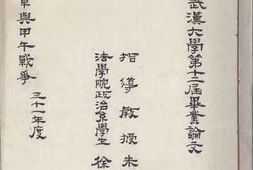 武漢大學第十二屆畢業論文
指導教授朱
法學院政治系學生徐
與甲午戰爭
三十一年度